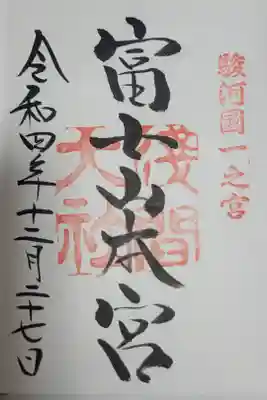 駿河國一之宮
富士山本宮
浅間大社
令和四年十二月二十七日